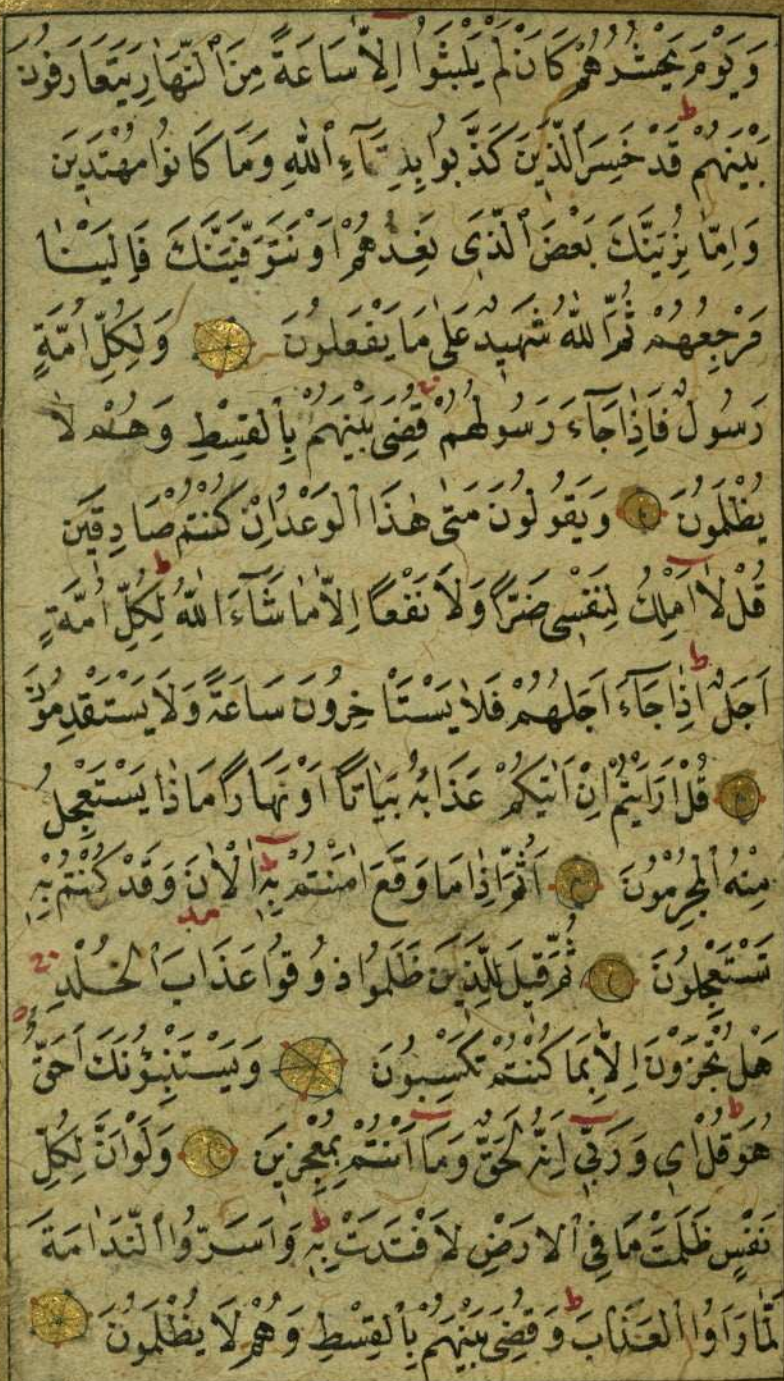 وَيَوْمَ يَحْشُرُهُمْ كَاَنْ لَمْ يَلْبَثُوا اِلَّا سَاعَةً مِنَ ٱلنَّهَارِ يَتَعَارَفُونَ
بَيْنَهُمْ قَدْ خَسِرَ ٱلَّذِينَ كَذَّبُوا بِلِقَاءِ ٱللهِ وَمَا كَانُوا مُهْتَدِينَ
وَاِمَّا نُرِيَنَّكَ بَعْضَ ٱلَّذِى نَعِدُهُمْ اَوْ نَتَوَفَّيَنَّكَ فَاِلَيْنَا
مَرْجِعُهُمْ ثُمَّ اللهُ شَهِيدٌ عَلٰى مَا يَفْعَلُونَ وَلِكُلِّ اُمَّةٍ
رَسُولٌ فَاِذَا جَاءَ رَسُولُهُمْ قُضِىَ بَيْنَهُمْ بِٱلْقِسْطِ وَهُمْ لَا
يُظْلَمُونَ وَيَقُولُونَ مَتٰى هٰذَا ٱلْوَعْدُ اِنْ كُنْتُمْ صَادِقِينَ
قُلْ لَا اَمْلِكُ لِنَفْسِى ضَرًّا وَلَا نَفْعًا اِلَّا مَا شَاءَ اللهُ لِكُلِّ اُمَّةٍ
اَجَلٌ اِذَا جَاءَ اَجَلُهُمْ فَلَا يَسْتَاْخِرُونَ سَاعَةً وَلَا يَسْتَقْدِمُونَ
قُلْ اَرَاَيْتُمْ اِنْ اَتٰيكُمْ عَذَابُهُ بَيَاتًا اَوْ نَهَارًا مَاذَا يَسْتَعْجِلُ
مِنْهُ ٱلْمُجْرِمُونَ اَثُمَّ اِذَا مَا وَقَعَ اٰمَنْتُمْ بِهِ اٰلْاٰنَ وَقَدْ كُنْتُمْ بِهِ
تَسْتَعْجِلُونَ ثُمَّ قِيلَ لِلَّذِينَ ظَلَمُوا ذُوقُوا عَذَابَ ٱلْخُلْدِ
هَلْ تُجْزَوْنَ اِلَّا بِمَا كُنْتُمْ تَكْسِبُونَ وَيَسْتَنْبِؤُنَكَ اَحَقٌّ
هُوَ قُلْ اِى وَرَبِّى اِنَّهُ لَحَقٌّ وَمَا اَنْتُمْ بِمُعْجِزِينَ وَلَوْ اَنَّ لِكُلِّ
نَفْسٍ ظَلَمَتْ مَا فِى ٱلْاَرْضِ لَافْتَدَتْ بِهِ وَاَسَرُّوا ٱلنَّدَامَةَ
لَمَّا رَاَوُا ٱلْعَذَابَ وَقُضِىَ بَيْنَهُمْ بِٱلْقِسْطِ وَهُمْ لَا يُظْلَمُونَ